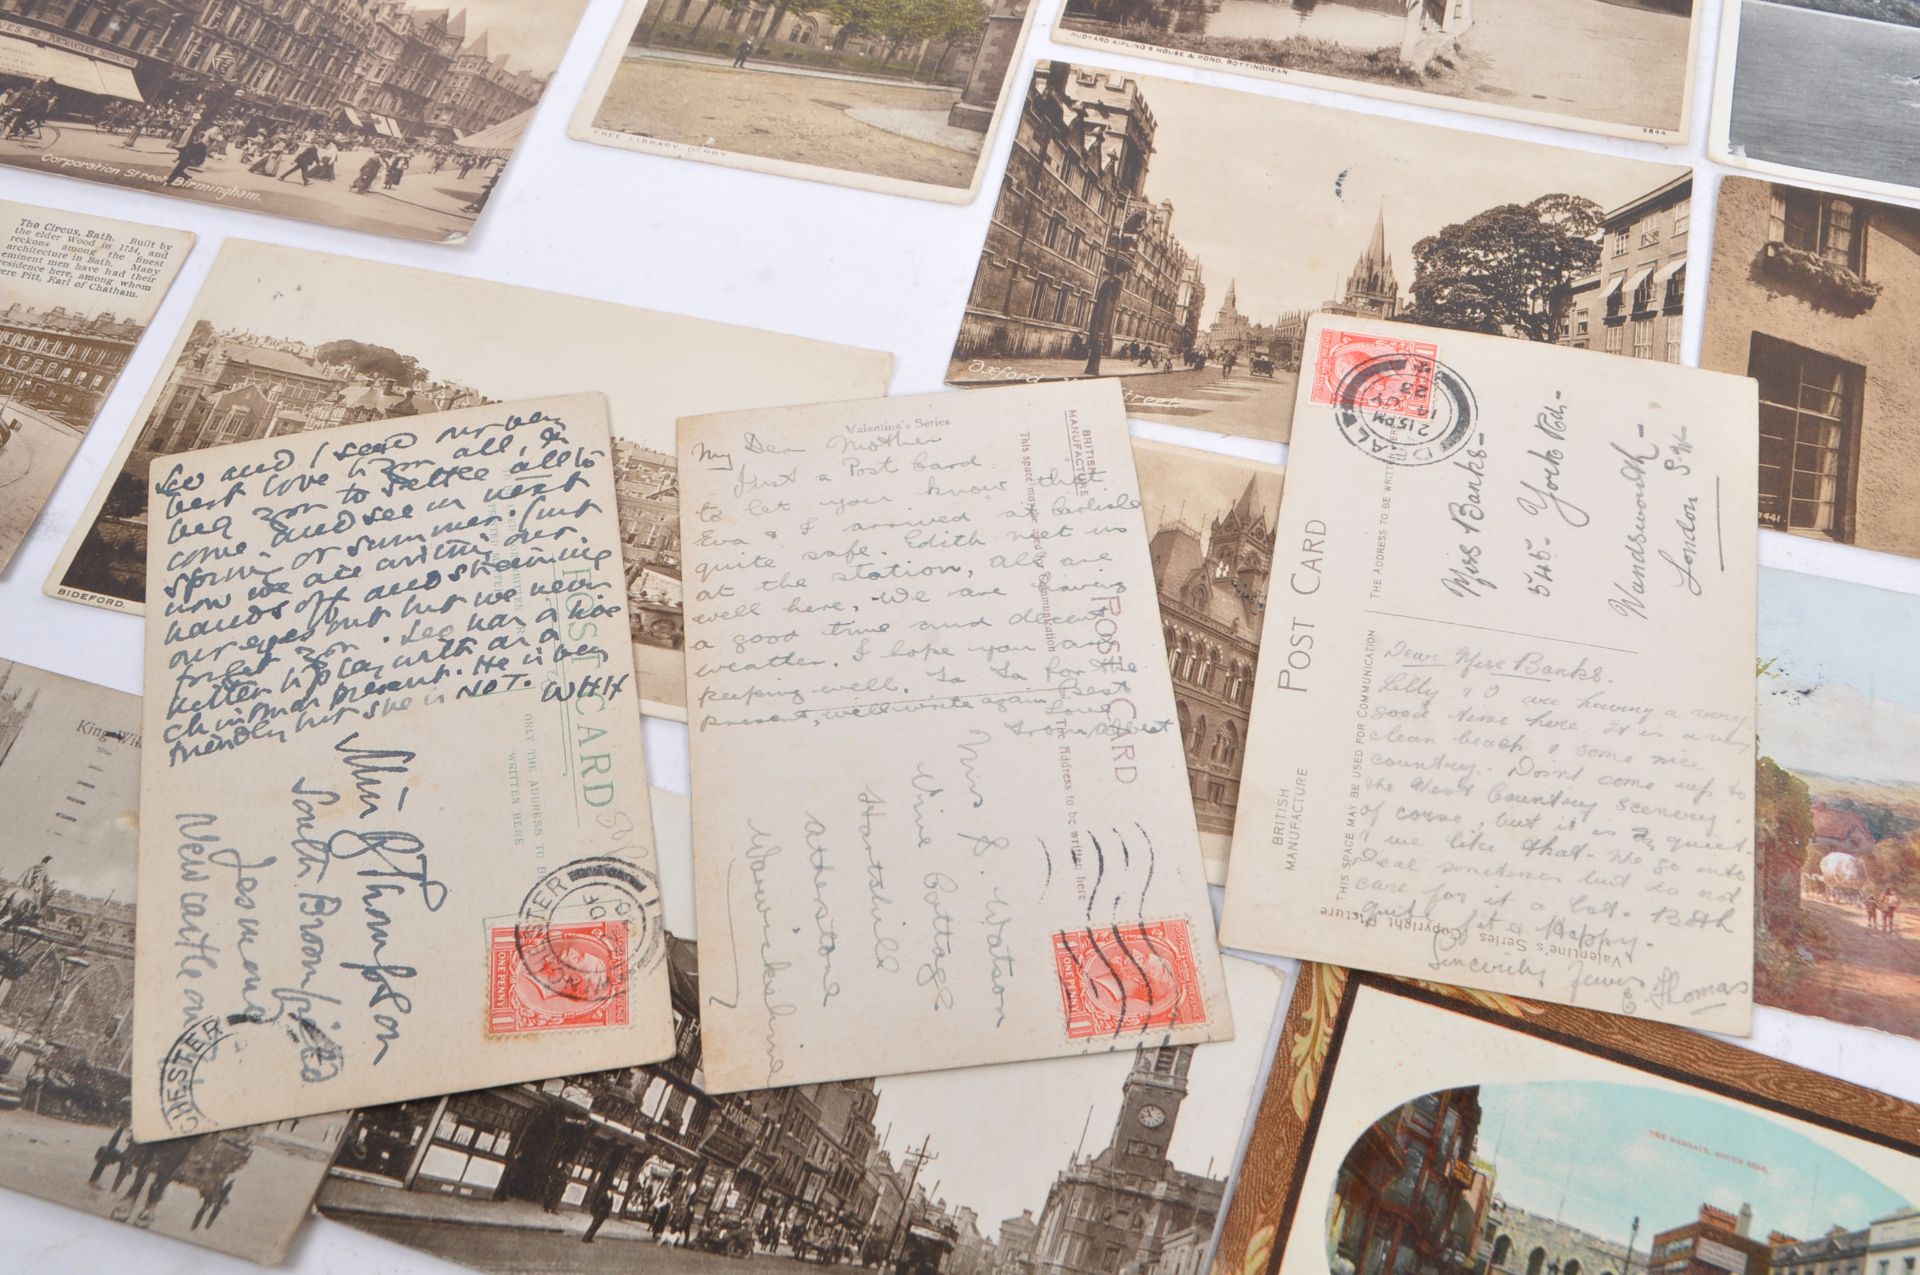 VES. 38.
Corporation Street, Birmingham.
FREE LIBRARY, DERBY
RUDYARD KIPLING'S HOUSE & POND, ROTTINGDEAN.
9844
The Circus, Bath. Built by
the elder Wood in 1754, and
reckons among the finest
architecture in Bath. Many
eminent men have had their
residence here, among whom
were Pitt, Earl of Chatham.
BIDEFORD.
Oxford
King
3441
THE BARGATE, SOUTH SIDE.
Leo and I send our very
best love to you all, &
beg you to settle all to
come and see us next
spring or summer. Just
now we are writing our
hands off and straining
our eyes out but we never
forget you. Leo has a live
kitten to play with as a
Christmas present. He is very
friendly but she is NOT. WHH
POST CARD
ONLY THE ADDRESS TO BE
WRITTEN HERE
Thompson
South Broomfield
Jesmond
Newcastle on
MANCHESTER
CHESTER
ONE PENNY
Valentine's Series
My Dear Mother
Just a Post Card
to let you know that
Eva & I arrived at Carlisle
quite safe. Edith met us
at the station, all are
well here. We are having
a good time and decent
weather. I hope you are
keeping well. Ta Ta for the
present, will write again Best
Love
from Albert
BRITISH
MANUFACTURE
This space may be used for Communication
POST CARD
The Address to be written here
Mrs J. Watson
Vine Cottage
Hartshill
Atherstone
Warwickshire
ONE PENNY
POST CARD
BRITISH
MANUFACTURE
THE ADDRESS TO BE WRITTEN
THIS SPACE MAY BE USED FOR COMMUNICATION
Valentine's Series Copyright Picture
DEAL
2 15 PM
14
Miss Banks
545 York Rd
Wandsworth
London S.W.
Dear Miss Banks.
Lilly & I are having a very
good time here. It is a very
clean beach & some nice
country. Don't come up to
the West Country Scenery.
of corse, but it is quiet
& we like that. We go into
Deal sometimes but do not
care for it a lot. Both
quite fit & Happy.
Sincerily Yours
Thomas